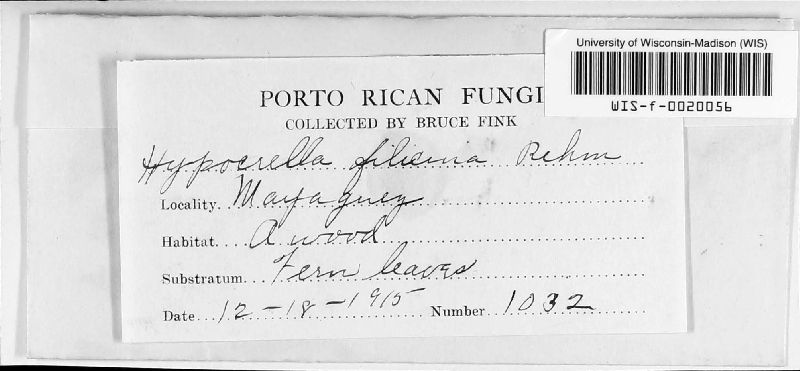 University of Wisconsin-Madison (WIS)
WIS-f-0020056
PORTO RICAN FUNGI
COLLECTED BY BRUCE FINK
Hypocrella filicina Rehm
Locality. Mayaguez
Habitat. A wood
Substratum. Fern leaves
Date 12-18-1915 Number 1032